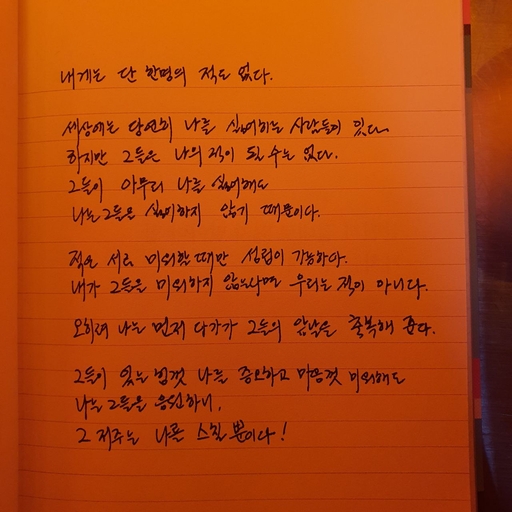 내게는 단 한명의 적도 없다.
세상에는 당연히 나를 싫어하는 사람들이 있다.
하지만 그들은 나의 적이 될 수는 없다.
그들이 아무리 나를 싫어해도
나는 그들을 싫어하지 않기 때문이다.
적은 서로 미워할 때만 성립이 가능하다.
내가 그들을 미워하지 않는다면 우리는 적이 아니다.
오히려 나는 먼저 다가가 그들의 앞날을 축복해 준다.
그들이 있는 힘껏 나를 증오하고 마음껏 미워해도
나는 그들을 응원하니,
그 저주는 나를 스칠 뿐이다!